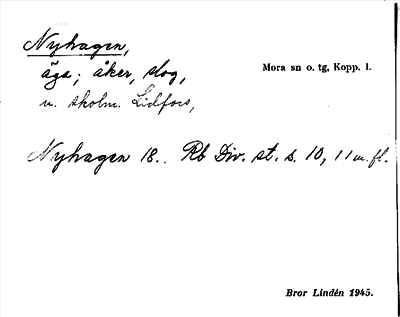 Nyhagen,
äga; åker, slog,
Mora sn o. tg, Kopp. l.
u. skolm. Lidfors,
Nyhagen 18.. Rb Div. st. s. 10, 11 m. fl.
Bror Lindén 1945.